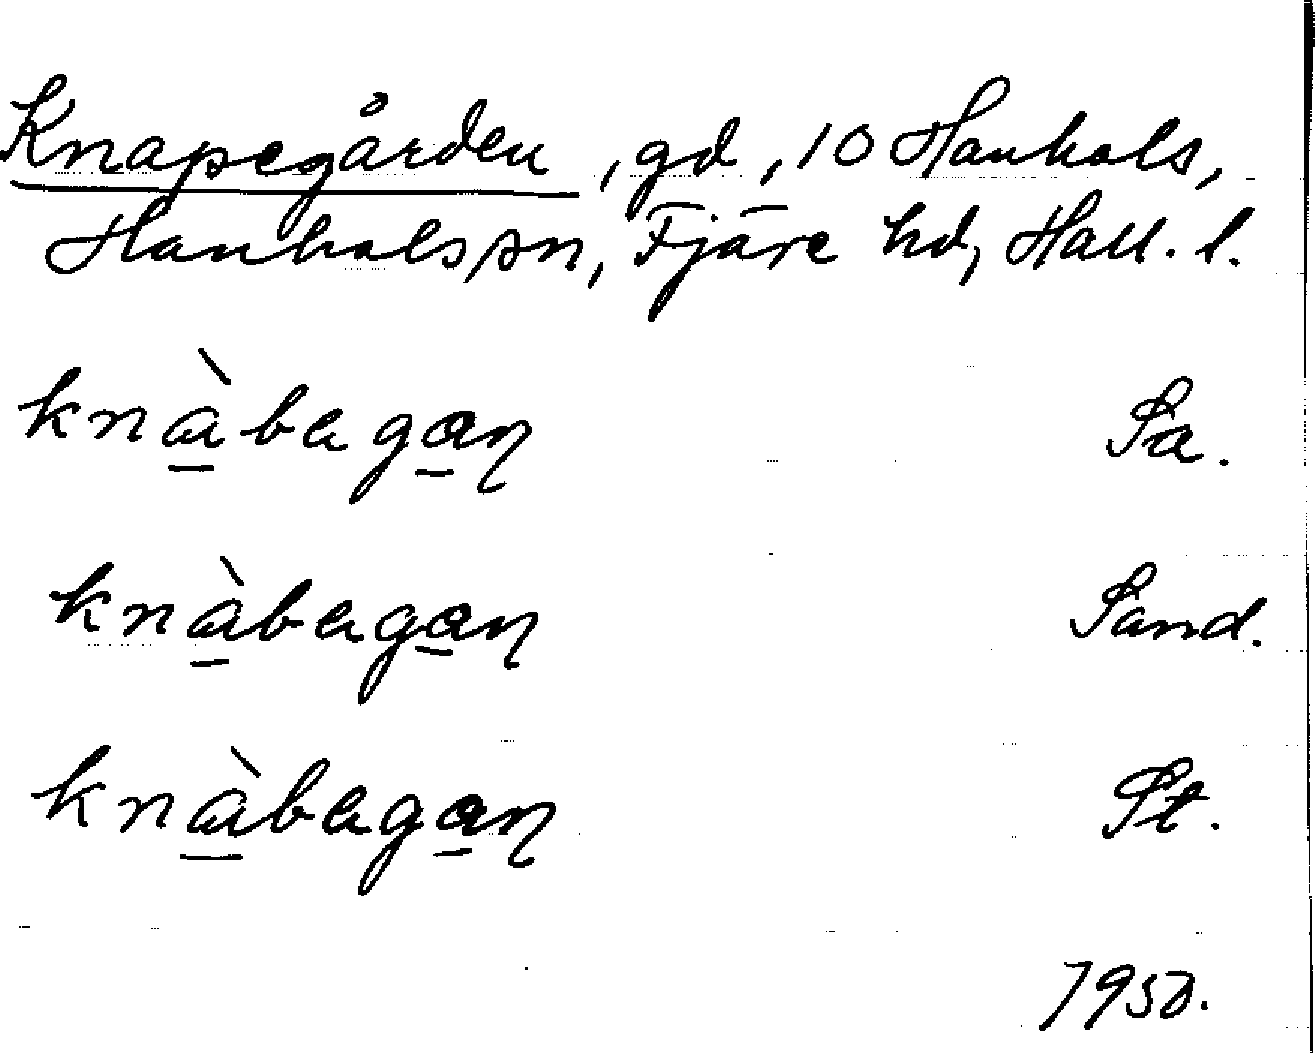 Knapegården, gd, 10 Hanhals,
Hanhals sn, Fjäre hd, Hall. l.
knàbagaɳ Sa.
knàbagaɳ Sand.
knàbagaɳ St.
1950.